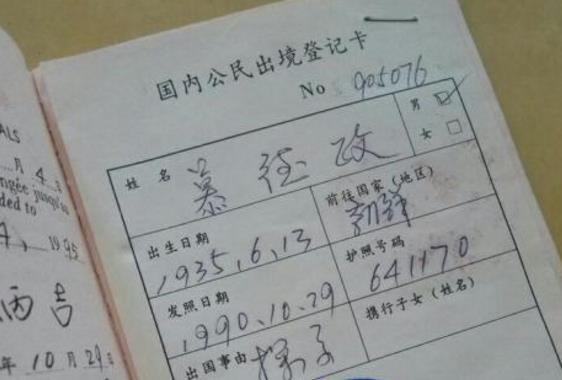 国内公民出境登记卡
No 905076
姓 名 慕德政 男 ☑ 女 □
出生日期 1935.6.13 前往国家（地区） 朝鲜
发照日期 1990.10.29 护照号码 641170
出国事由 探亲 携行子女（姓名）
ALS
月 4
ongée jusqu'au
ded to
4, 1995
西吉
年 10 月 29 日